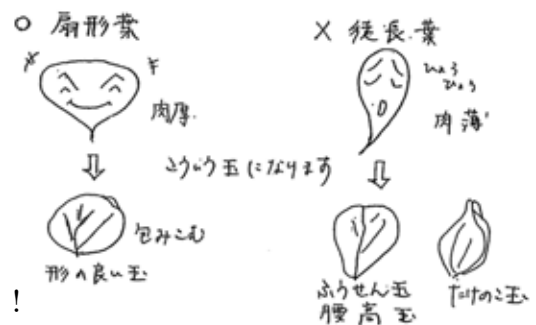 ○ 扇形葉
肉厚
包みこむ
形の良い玉
!
× 徒長葉
ひょろ
ひょろ
肉薄
こういう玉になります
ふうせん玉
腰高玉
たけのこ玉